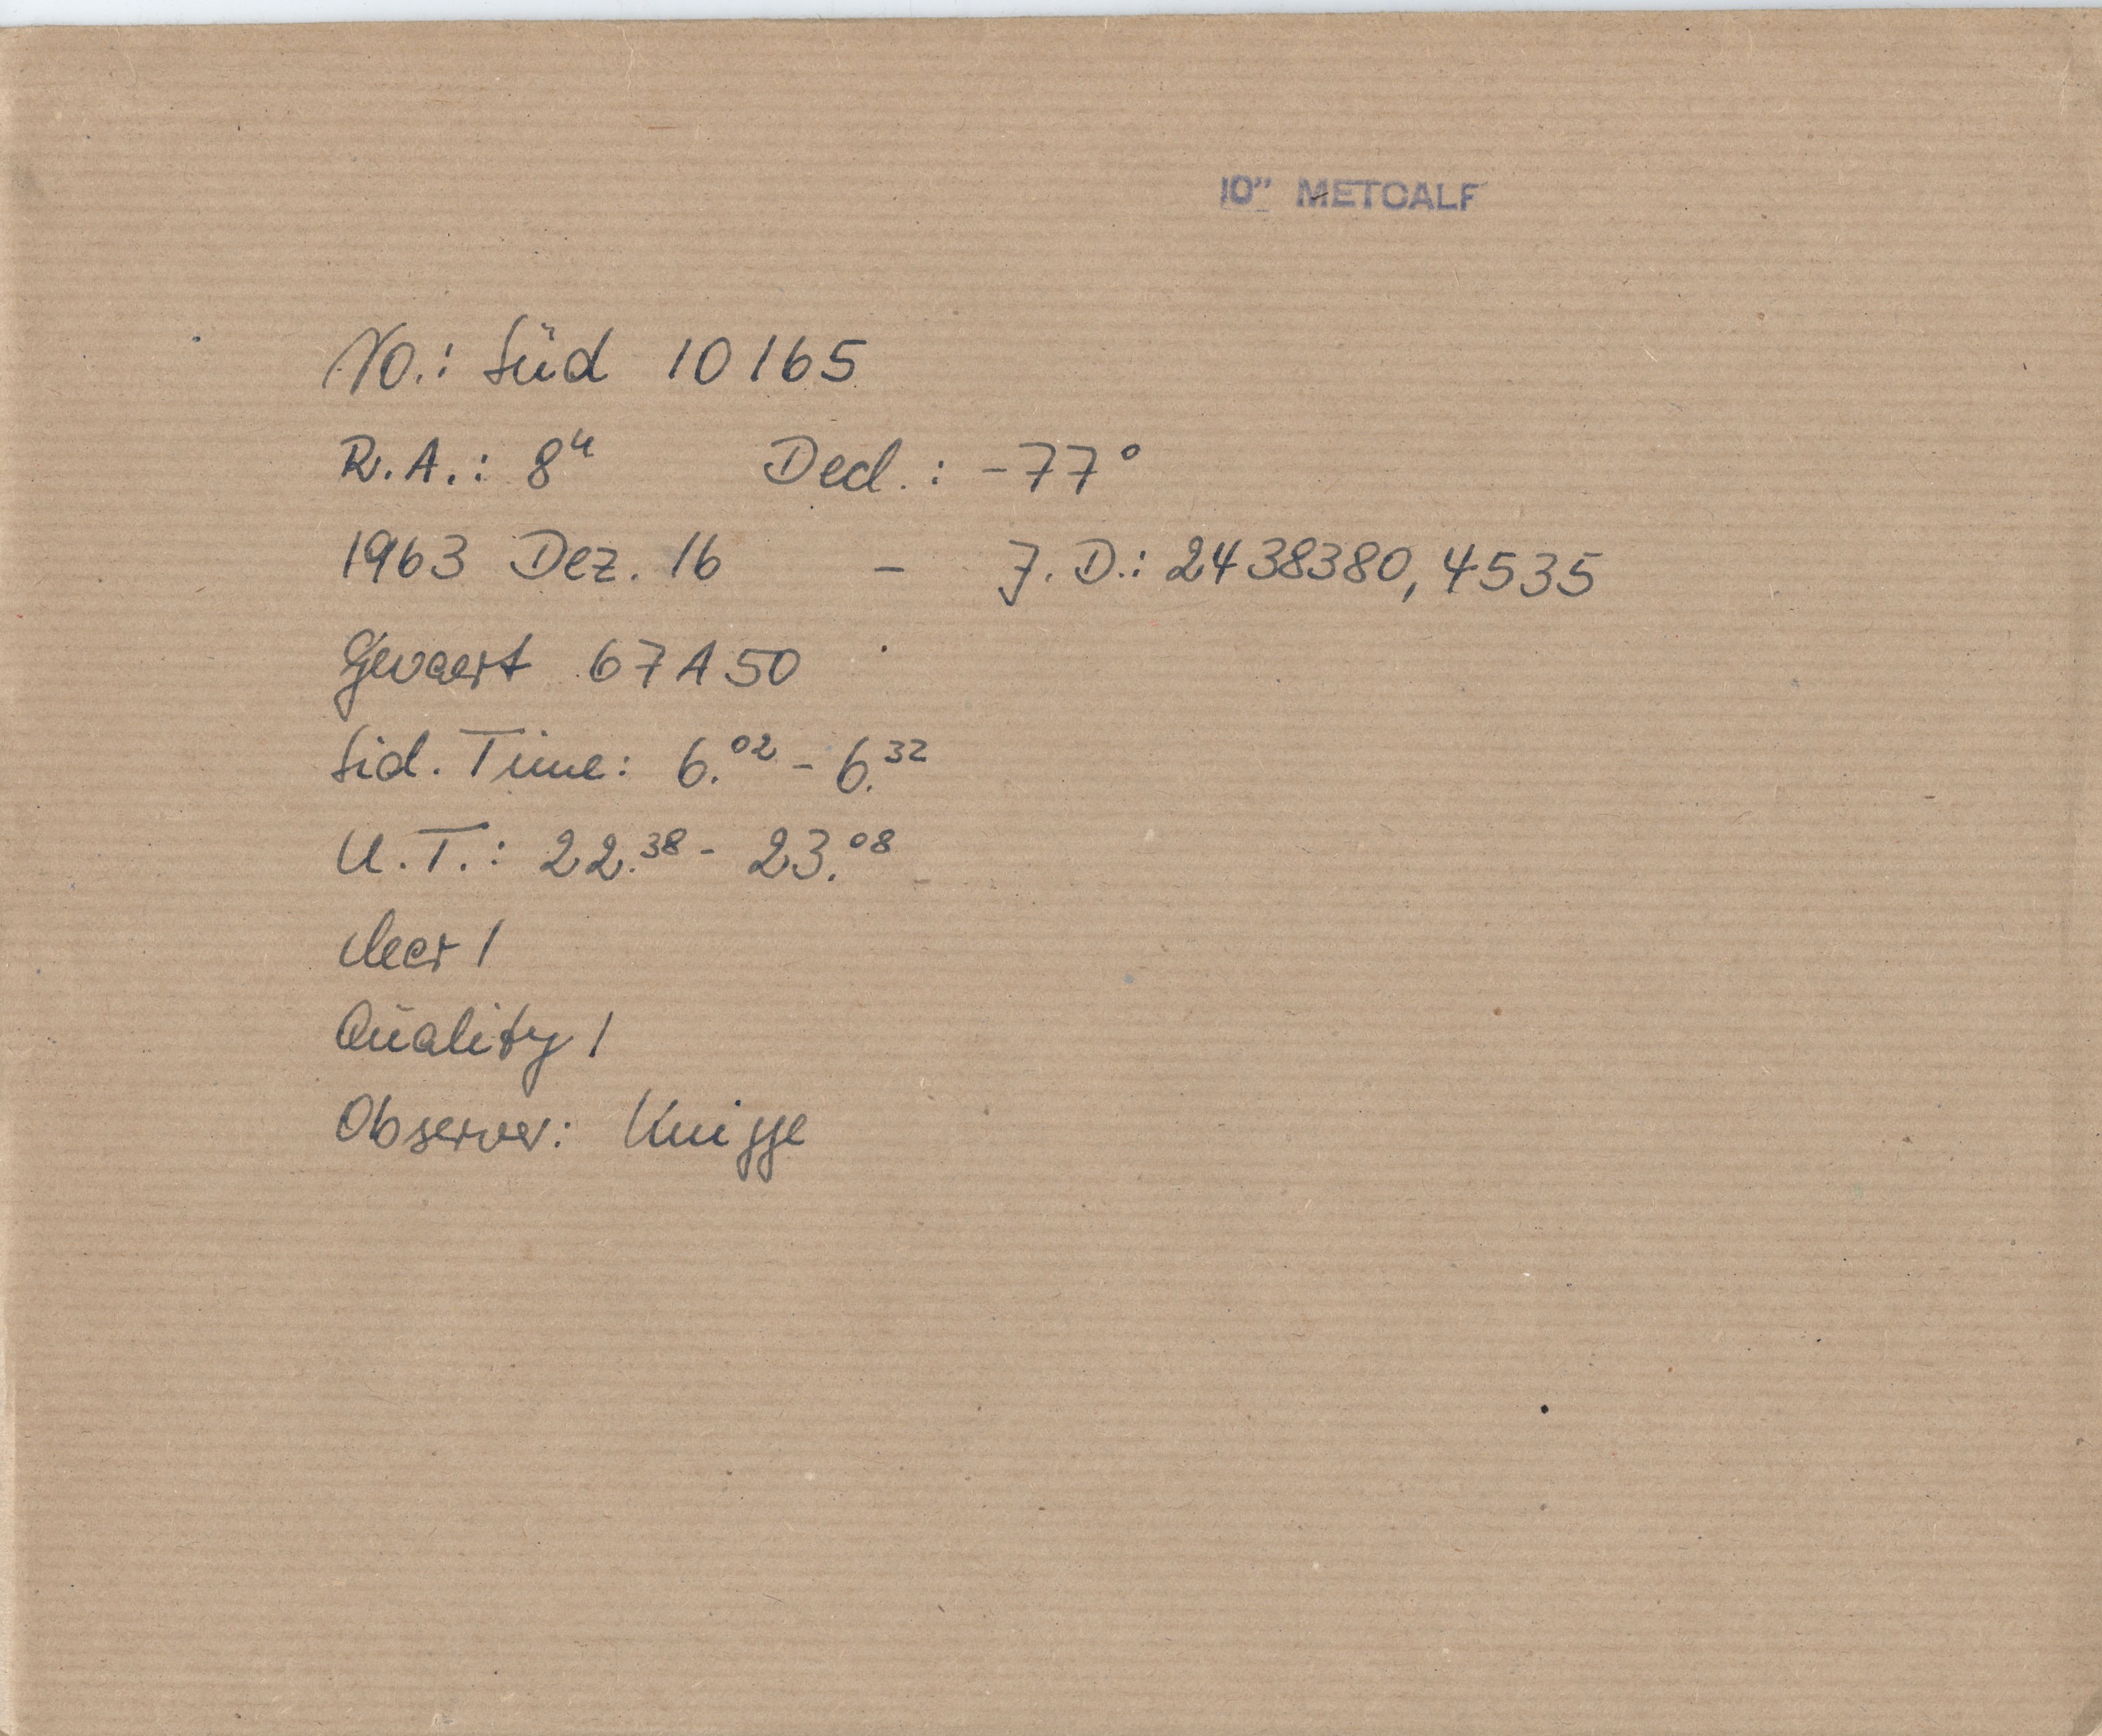 10" METCALF
No.: Süd 10165
R.A.: 8ʰ Decl.: -77°
1963 Dez. 16 - J.D.: 2438380,4535
Gevaert 67A50
Sid. Time: 6.⁰² - 6.³²
U.T.: 22.³⁸ - 23.⁰⁸
clear 1
Quality 1
Observer: Knigge